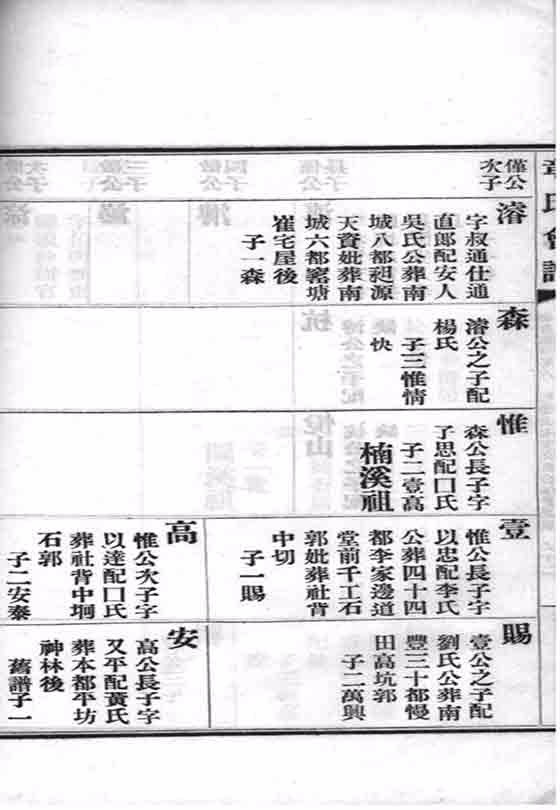 章氏會譜
僅公
次子
濬
字叔通仕通
直郎配安人
吳氏公葬南
城八都昶源
天資妣葬南
城六都窰塘
崔宅屋後
子一森
森
濬公之子配
楊氏
子三惟情
快
惟
森公長子字
了思配囗氏
子二壹高
楠溪祖
壹
惟公長子字
以忠配李氏
公葬四十四
都李家邊道
堂前千工石
郭妣葬社背
中切
子一賜
高
惟公次子字
以達配囗氏
葬社背中坰
石郭
子二安泰
賜
壹公之子配
劉氏公葬南
豐三十都慢
田高坑郭
子二萬興
安
高公長子字
又平配黃氏
葬本都平坊
神林後
舊譜子一